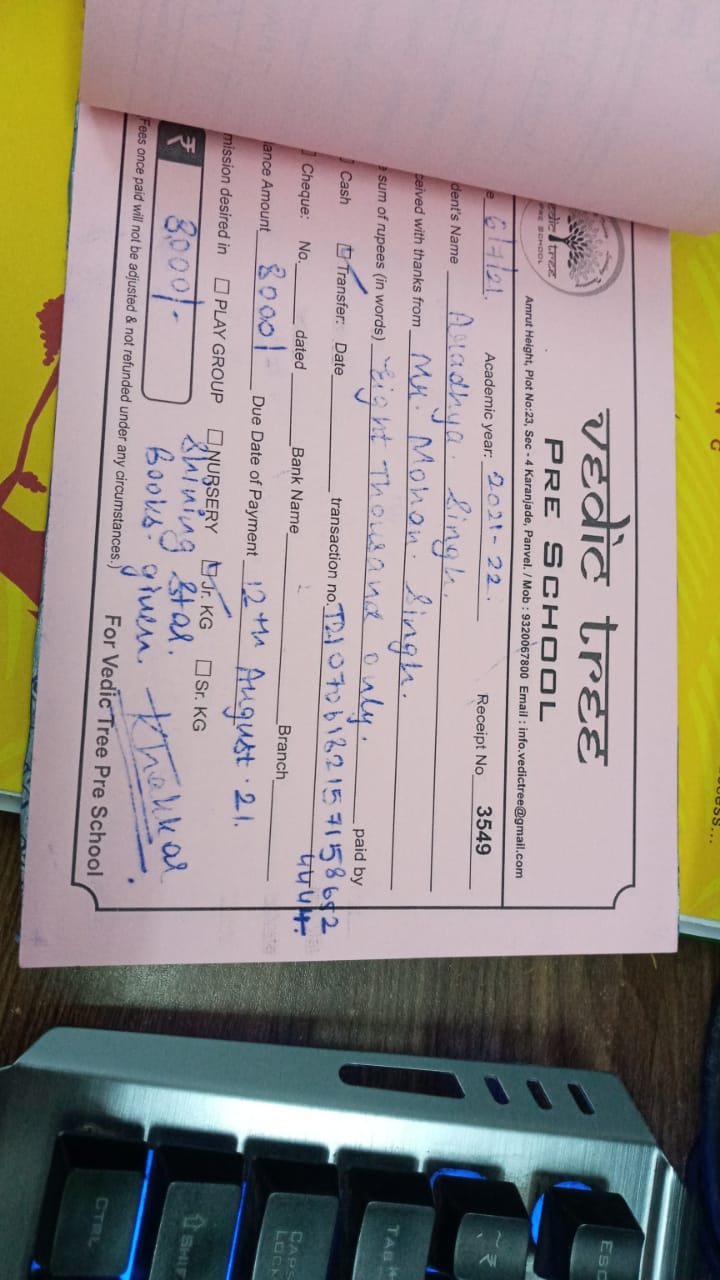 vedic tree
PRE SCHOOL
vedic tree
PRE SCHOOL
Amrut Height, Plot No:23, Sec - 4 Karanjade, Panvel. / Mob : 9320067800 Email : info.vedictree@gmail.com
e 6/7/21. Academic year: 2021-22. Receipt No 3549
dent's Name Aradhya. Singh.
ceived with thanks from Mr. Mohan. Singh.
e sum of rupees (in words) Eight Thousand only. paid by
Cash Transfer: Date transaction no. T210706182157158652
4444.
Cheque: No. dated Bank Name Branch
lance Amount 8000/- Due Date of Payment 12th August. 21.
mission desired in PLAY GROUP NURSERY Jr. KG Sr. KG
₹ 8,000/- Shining Star.
Books. given. Thakkar
Fees once paid will not be adjusted & not refunded under any circumstances.)
For Vedic Tree Pre School
ESC
~ ₹
TAB
CAPS LOCK
SHIF
CTRL